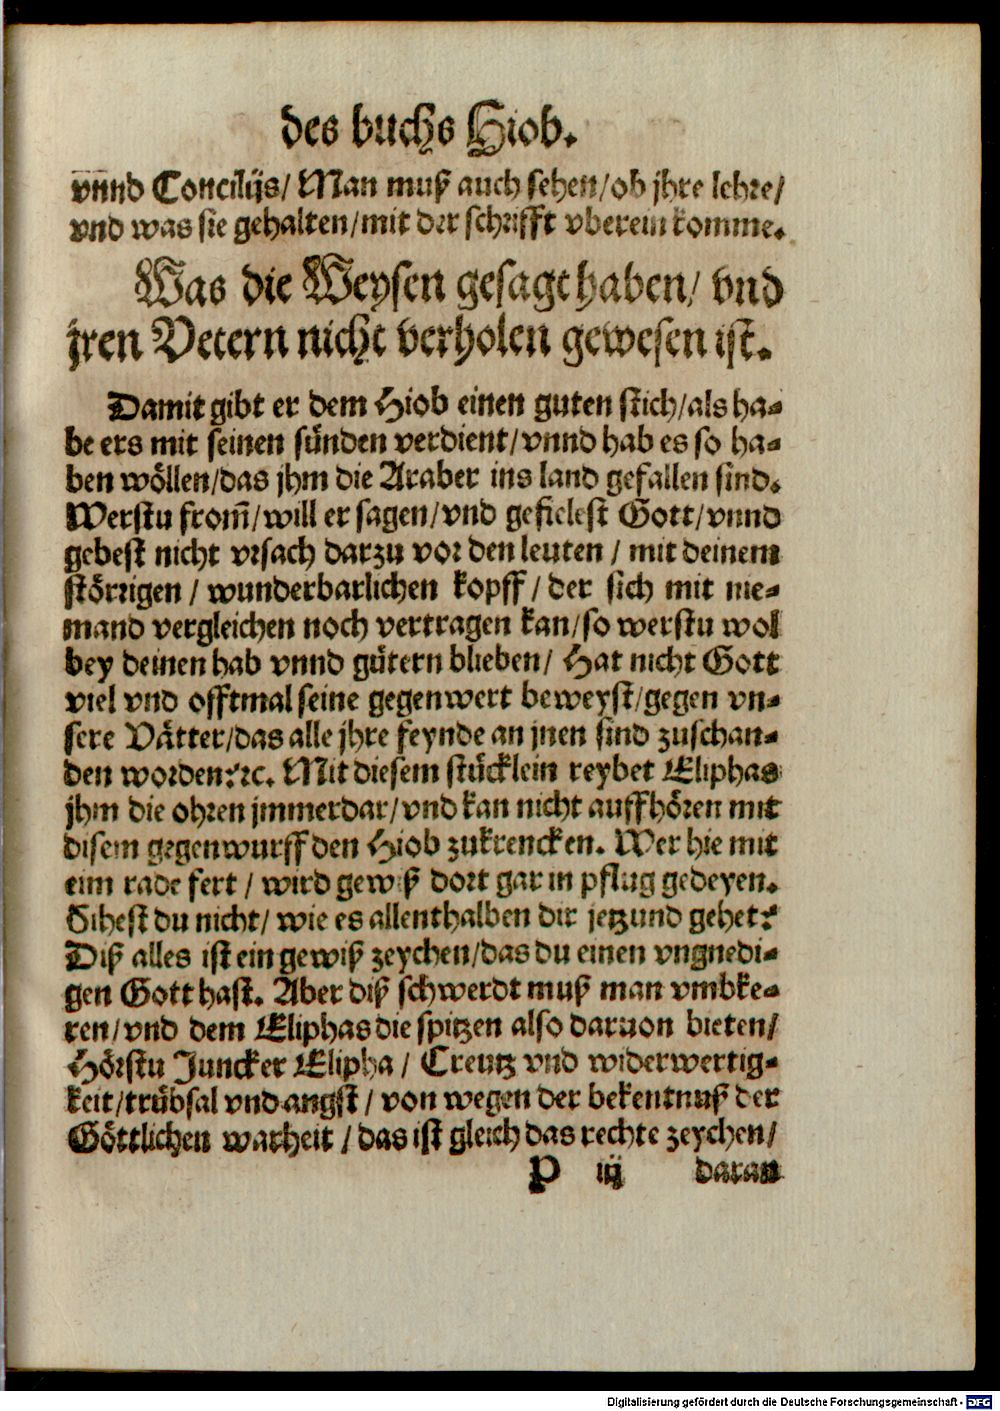 des buchs Hiob.
vnnd Concilijs/ Man muß auch sehen/ob jhre lehre/
vnd was sie gehalten/mit der schrifft vberein komme.
Was die Weysen gesagt haben/ vnd
jren Vetern nicht verholen gewesen ist.
Damit gibt er dem Hiob einen guten stich/als ha-
be ers mit seinen sünden verdient/vnnd hab es so ha-
ben wöllen/das jhm die Araber ins land gefallen sind.
Werstu from̃/will er sagen/vnd gefielest Gott/vnnd
gebest nicht vrsach darzu vor den leuten / mit deinem
störrigen / wunderbarlichen kopff / der sich mit nie-
mand vergleichen noch vertragen kan/so werstu wol
bey deinen hab vnnd gütern blieben/ Hat nicht Gott
viel vnd offtmal seine gegenwert beweyst/gegen vn-
sere Vätter/das alle jhre feynde an jnen sind zuschan-
den worden?ꝛc. Mit diesem stücklein reybet Eliphas
jhm die ohren jmmerdar/vnd kan nicht auffhören mit
disem gegenwurff den Hiob zukrencken. Wer hie mit
eim rade fert / wird gewiß dort gar in pflug gedeyen.
Sihest du nicht/ wie es allenthalben dir jetzund gehet?
Diß alles ist ein gewiß zeychen/das du einen vngnedi-
gen Gott hast. Aber diß schwerdt muß man vmbke-
ren/vnd dem Eliphas die spitzen also daruon bieten/
Hörstu Juncker Elipha / Creutz vnd widerwertig-
keit/trübsal vnd angst / von wegen der bekentnuß der
Göttlichen warheit / das ist gleich das rechte zeychen/
P iij daran
Digitalisierung gefördert durch die Deutsche Forschungsgemeinschaft - DFG